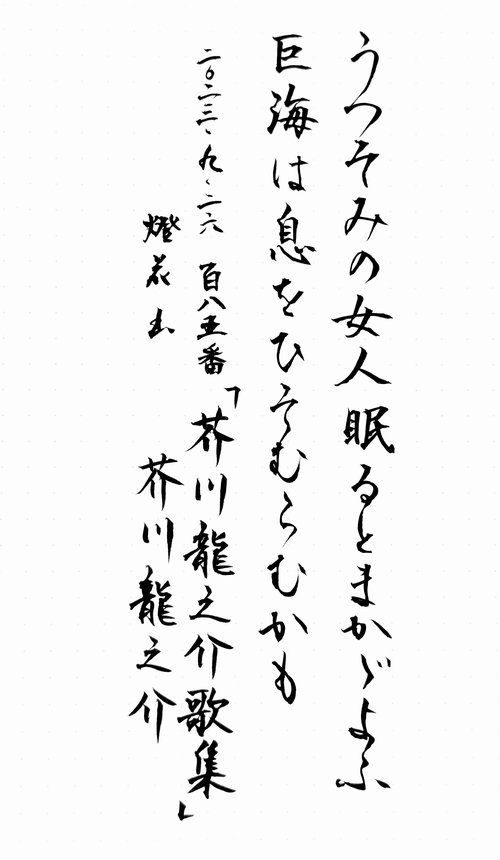 うつそみの女人眠るとまかゞよふ
巨海は息をひそむらむかも
二〇二三、九、二六 百八五番「芥川龍之介歌集」
燈花 芥川龍之介